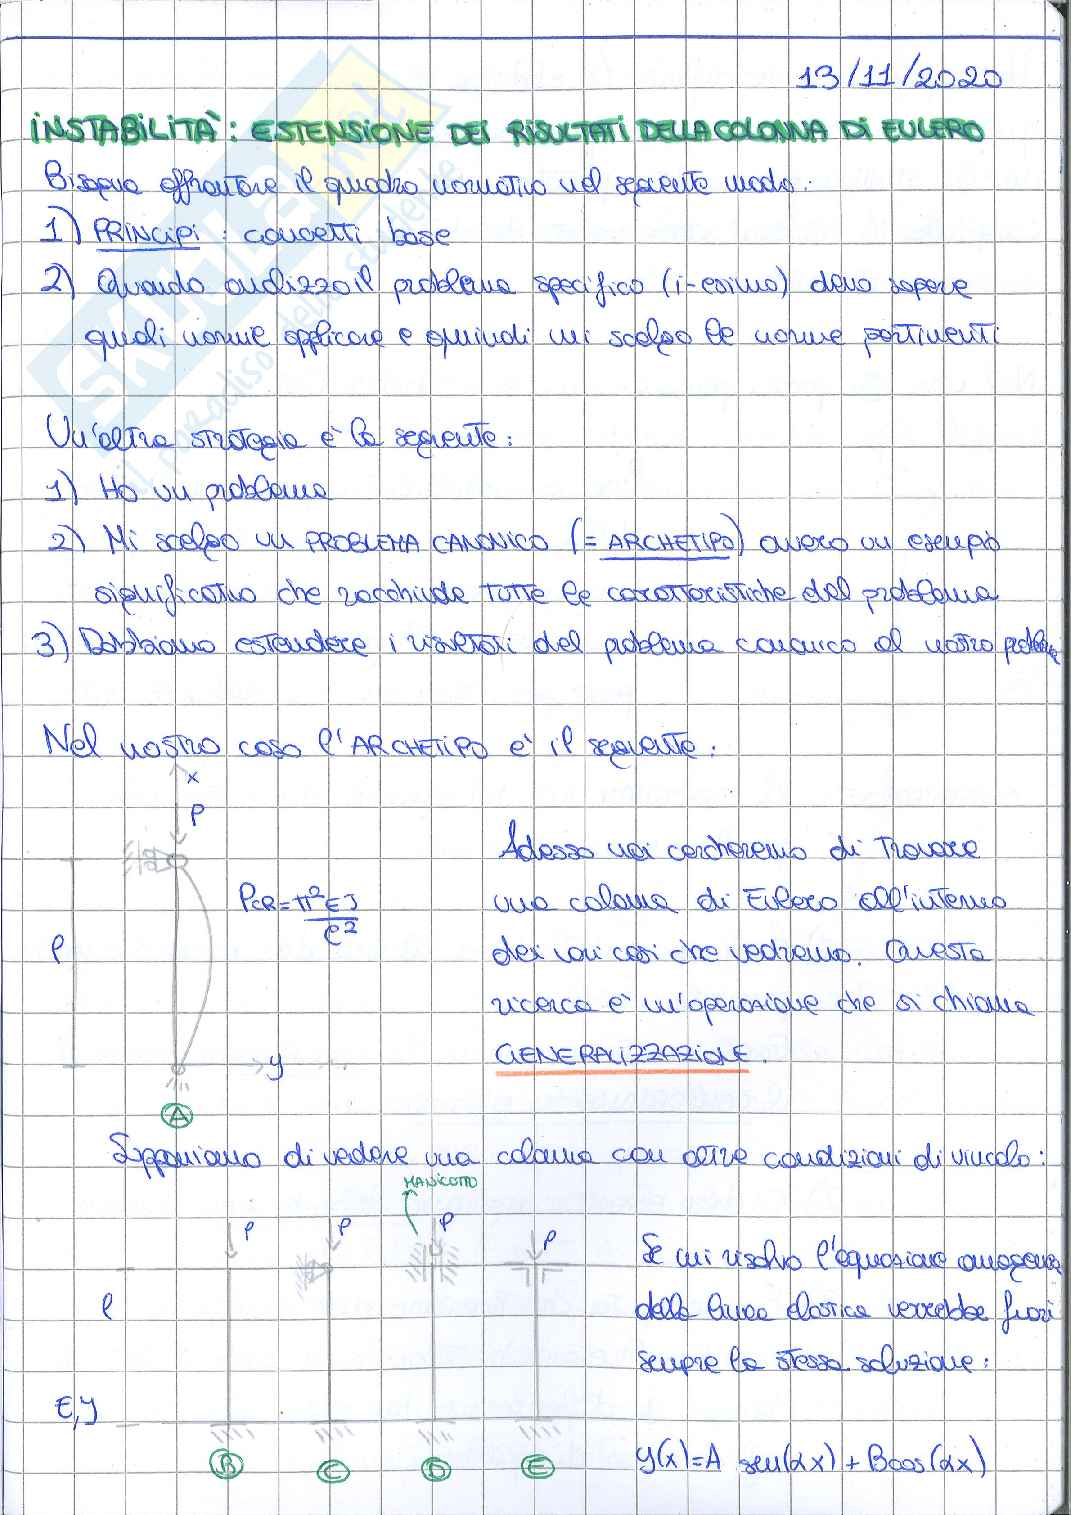 13/11/2020
INSTABILITÀ: ESTENSIONE DEI RISULTATI DELLA COLONNA DI EULERO
Bisogna affrontare il quadro normativo nel seguente modo:
1) PRINCIPI: concetti base
2) Quando analizzo il problema specifico (i-esimo) devo sapere
quali norme applicare e quindi mi scelgo le norme pertinenti
Un'altra strategia è la seguente:
1) Ho un problema
2) Mi scelgo un PROBLEMA CANONICO (= ARCHETIPO) ovvero un esempio
significativo che racchiude tutte le caratteristiche del problema
3) Dobbiamo estendere i risultati del problema canonico al nostro problema
Nel nostro caso l'ARCHETIPO è il seguente:
x
P
Adesso noi cercheremo di trovare
PCR = π²EJ
ℓ²
una colonna di Eulero all'interno
ℓ
dei vari casi che vedremo. Questa
ricerca è un'operazione che si chiama
GENERALIZZAZIONE.
y
A
Supponiamo di vedere una colonna con altre condizioni di vincolo:
MANICOTTO
P P P P
Se mi risolvo l'equazione omogenea
ℓ
della linea elastica verrebbe fuori
sempre la stessa soluzione:
E, J
B C D E
y(x) = A sen(αx) + B cos(αx)
skuola.net
il paradiso dello studente